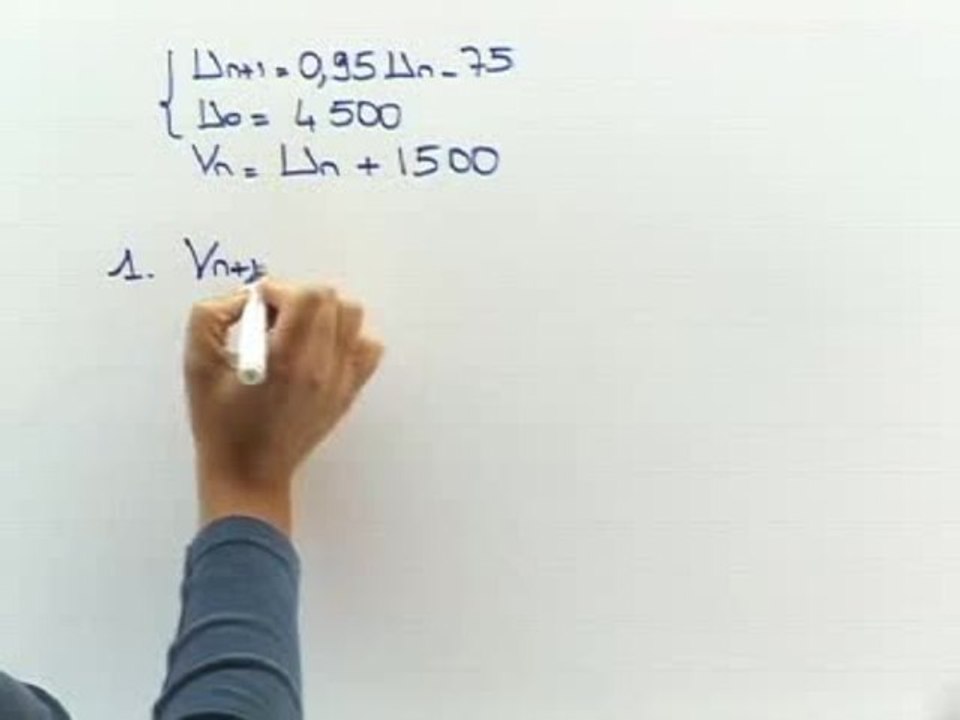 Un+1 = 0,95 Un - 75
U0 = 4 500
Vn = Un + 1500
1. Vn+1